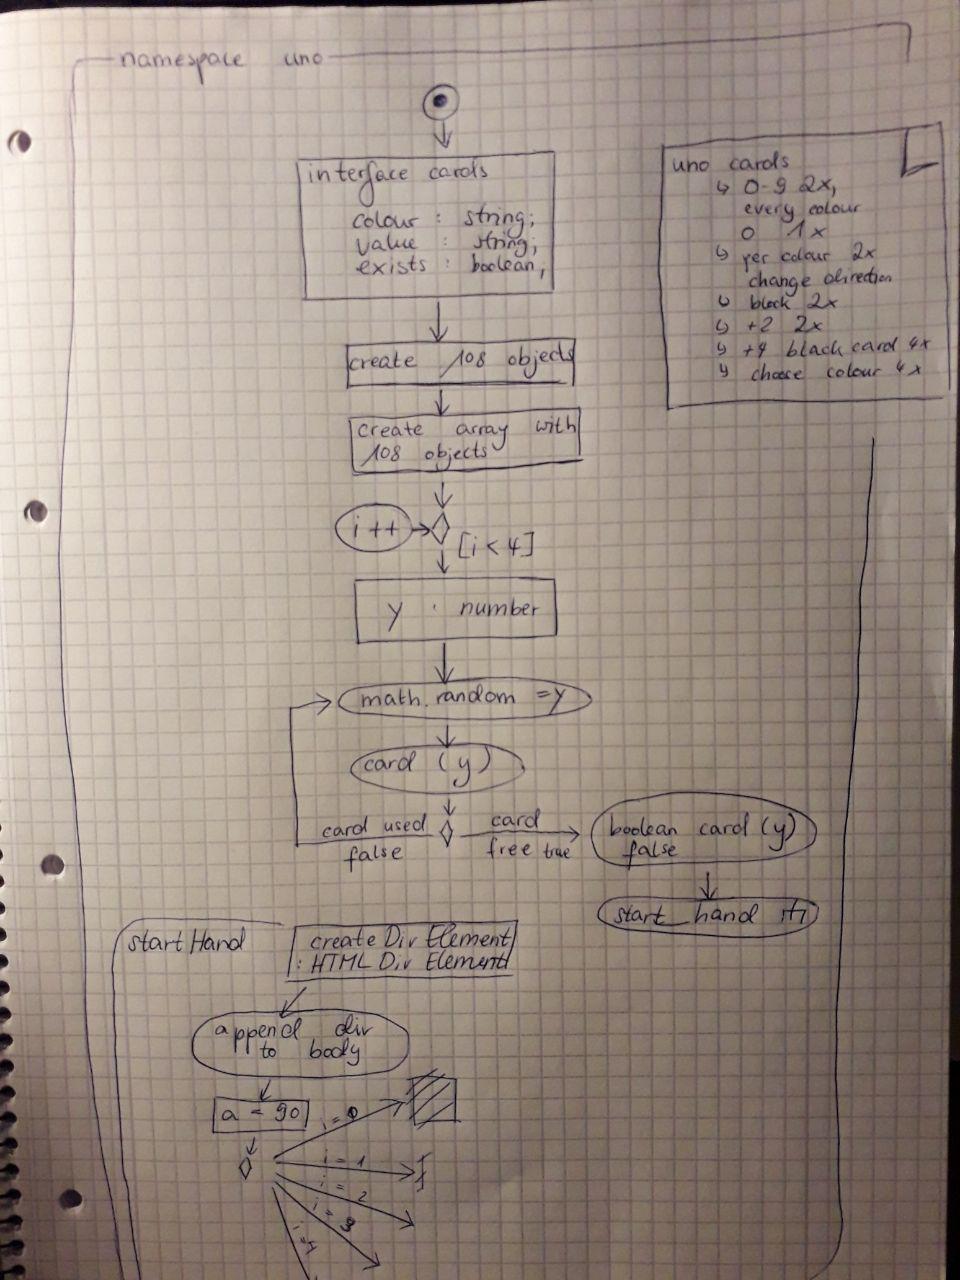 namespace uno
interface cards
colour : string;
value : string;
exists : boolean,
uno cards
↳ 0-9 2x,
every colour
0 1x
↳ per colour 2x
change direction
↳ block 2x
↳ +2 2x
↳ +4 black card 4x
↳ choose colour 4x
create 108 objects
create array with
108 objects
i ++
[i < 4]
y : number
math.random = y
card (y)
card used
false
card
free true
boolean card (y)
false
start_hand
startHand
create Div Element
: HTML Div Element
append div
to body
a = 90
i = 0
i = 1
i = 2
i = 3
i = 4